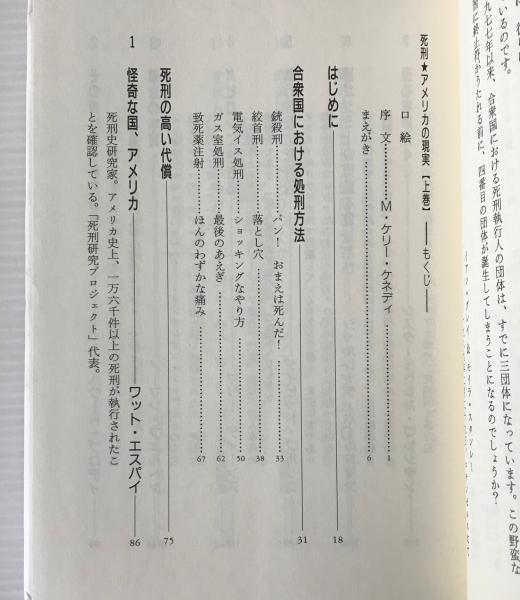 いるのです。
九七七年以来、合衆国における死刑執行人の団体は、すでに三団体になっています。この野蛮な
に終止符がうたれる前に、四番目の団体が誕生してしまうことになるのでしょうか？
死刑★アメリカの現実【上巻】――もくじ――
口絵
序文…………M・ケリー・ケネディ…………1
まえがき…………6
はじめに――18
合衆国における処刑方法――31
銃殺刑…………バン！ おまえは死んだ！…………33
絞首刑…………落とし穴…………38
電気イス処刑…………ショッキングなやり方…………50
ガス室処刑…………最後のあえぎ…………62
致死薬注射…………ほんのわずかな痛み…………67
死刑の高い代償――75
1 怪奇な国、アメリカ――ワット・エスパイ――86
死刑史研究家。アメリカ史上、一万六千件以上の死刑が執行されたこ
とを確認している。「死刑研究プロジェクト」代表。